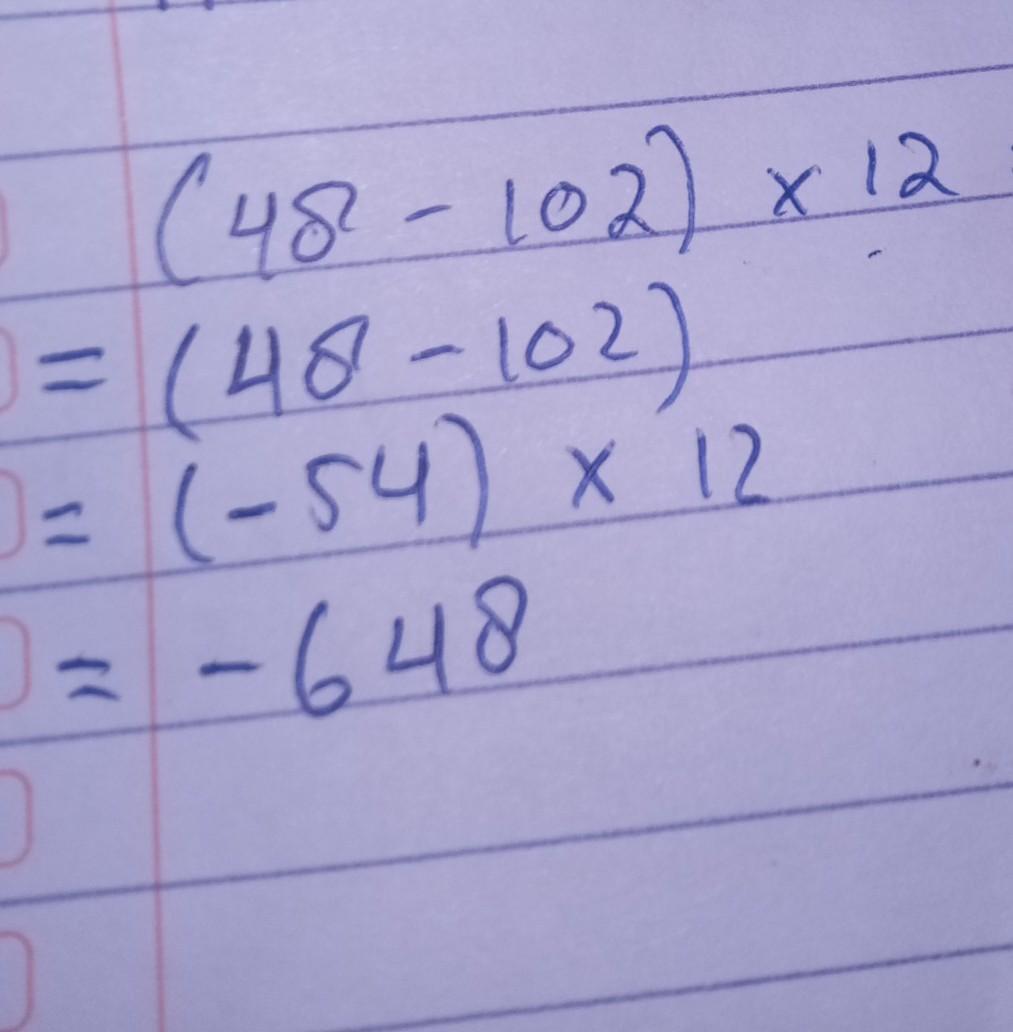 (48 - 102) x 12
= (48 - 102)
= (-54) x 12
= - 648